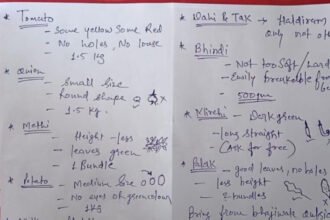 * Tomato
- Some yellow Some Red
- No holes, No louse
- 1.5 kg
* Onion
- small Size
- Round shape
- 1.5 kg.
* Methi
- Height - less
- leaves green
- 1 Bundle
* Potato
- Medium Size
- No eyes or green colour
- 1 kg
* Dahi & Tak → Haldiram
only not oth
* Bhindi
- Not too Soft / Hard
- Easily breakable from
- 500 gm
* Mirchi - Dark green
- long straight
- (Ask for free)
* Palak
- good leaves, no holes
- less height
- 2 bundles
Bring from bhajiwala